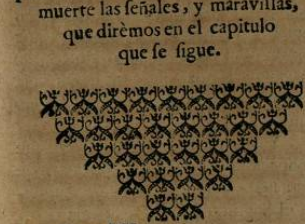 muerte las ſeñales, y maravillas,
que dirèmos en el capitulo
que ſe ſigue.